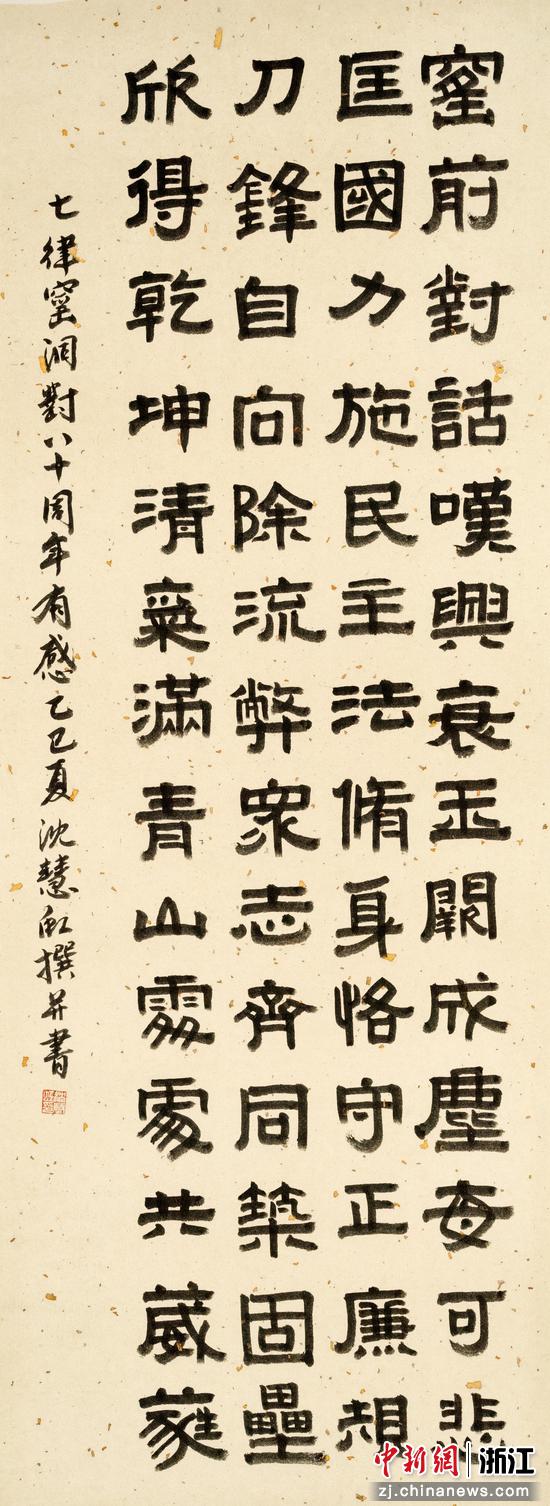 窰前對話嘆興衰玉闕成塵每可悲
匡國力施民主法脩身恪守正廉規
刀鋒自向除流弊眾志齊同築固壘
欣得乾坤清氣滿青山處處共葳蕤
七律窰洞對八十周年有感乙巳夏沈慧虹撰并書
中新網 浙江
zj.chinanews.com